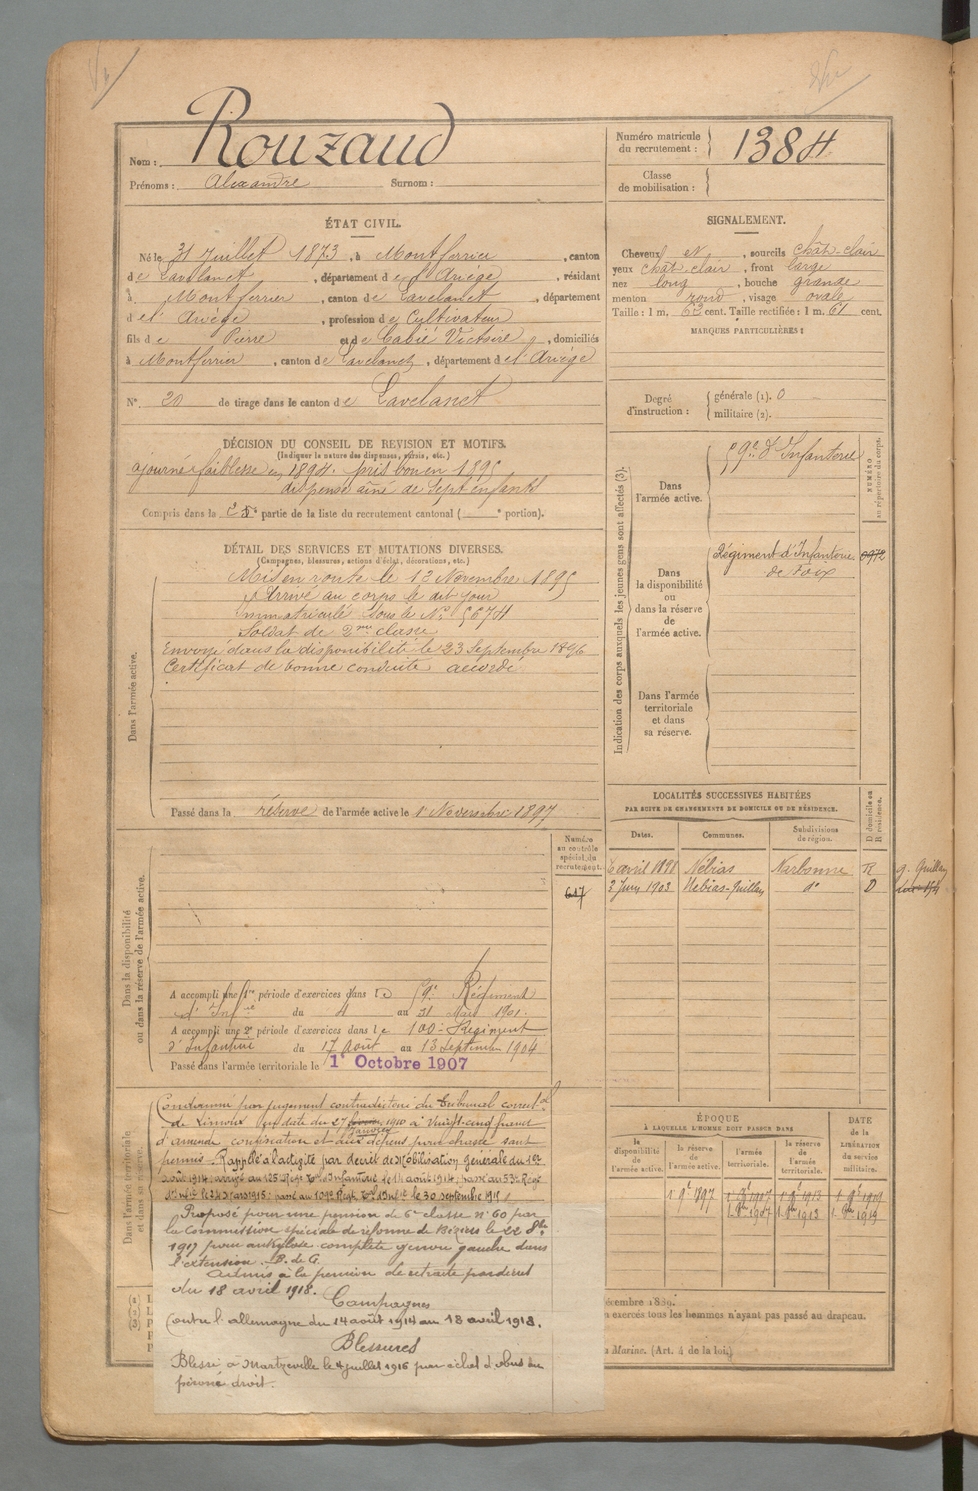 Nom : Rouzaud
Prénoms : Alexandre Surnom :
Numéro matricule du recrutement : 1384
Classe de mobilisation :
ÉTAT CIVIL.
Né le 31 Juillet 1873, à Montferrier, canton
de Lavelanet, département de l'Ariège, résidant
à Montferrier, canton de Lavelanet, département
de l'Ariège, profession de Cultivateur
fils de Pierre et de Cabié Victoire, domiciliés
à Montferrier, canton de Lavelanet, département de l'Ariège
N° 20 de tirage dans le canton de Lavelanet
SIGNALEMENT.
Cheveux et, sourcils chât-clair
yeux chât-clair, front large
nez long, bouche grande
menton rond, visage ovale
Taille : 1 m. 62 cent. Taille rectifiée : 1 m. 61 cent.
MARQUES PARTICULIÈRES :
Degré d'instruction : générale (1). 0
militaire (2).
DÉCISION DU CONSEIL DE REVISION ET MOTIFS.
(Indiquer la nature des dispenses, sursis, etc.)
ajourné faiblesse en 1894. pris bon en 1895
dispensé aîné de sept enfants
Compris dans la partie de la liste du recrutement cantonal ( e portion).
DÉTAIL DES SERVICES ET MUTATIONS DIVERSES.
(Campagnes, blessures, actions d'éclat, décorations, etc.)
Dans l'armée active.
Mis en route le 13 Novembre 1895
Arrivé au corps le dit jour
Immatriculé sous le N° 5674
Soldat de 2me classe
Envoyé dans la disponibilité le 23 Septembre 1896
Certificat de bonne conduite accordé
Passé dans la réserve de l'armée active le 1er Novembre 1897
Indication des corps auxquels les jeunes gens sont affectés (3).
NUMÉRO au répertoire du corps.
Dans l'armée active.
59e d'Infanterie
Dans la disponibilité ou dans la réserve de l'armée active.
Régiment d'Infanterie
de Foix
Dans l'armée territoriale et dans sa réserve.
LOCALITÉS SUCCESSIVES HABITÉES
PAR SUITE DE CHANGEMENTS DE DOMICILE OU DE RÉSIDENCE.
Dates. Communes. Subdivisions de région. D domicile ou R résidence.
6 avril 1898 Nébias Narbonne R g. Quillan
3 Juin 1903 Nebias-Quillan do D
Dans la disponibilité ou dans la réserve de l'armée active.
Numéro au contrôle spécial du recrutement.
617
A accompli une 1re période d'exercices dans le 59e Régiment
d'Infie du 4 au 31 Mars 1901.
A accompli une 2e période d'exercices dans le 100e Régiment
d'Infanterie du 17 Août au 13 Septembre 1904
Passé dans l'armée territoriale le 1er Octobre 1907
Dans l'armée territoriale et dans sa réserve.
Condamné par jugement contradictoire du tribunal correctel
de Limoux en date du 27 Janvier 1910 à Vingt-cinq francs
d'amende, confiscation et aux dépens pour chasse sans
permis. Rappelé à l'activité par décret de Mobilisation générale du 1er
août 1914; arrivé au 135e Régt Tal d'Infanterie le 14 août 1914; passé au 53e Régt
d'Infie le 24 Mars 1915; passé au 109e Régt Tal d'Infie le 30 septembre 1915
Proposé pour une pension de 6e classe n° 60 par
la Commission spéciale de réforme de Béziers le 22 8bre
1917 pour ankylose complète genou gauche dans
l'extension. B. de G.
Admis à la pension de retraite par décret
du 18 avril 1918.
Campagnes
Contre l'allemagne du 14 août 1914 au 18 avril 1918.
Blessures
Blessé à Martzeville le 4 juillet 1916 par éclat d'obus au
péroné droit.
ÉPOQUE
À LAQUELLE L'HOMME DOIT PASSER DANS
la disponibilité de l'armée active. la réserve de l'armée active. l'armée territoriale. la réserve de l'armée territoriale.
DATE de la LIBÉRATION du service militaire.
1 9e 1897 1 9e 1907 1 9e 1913 1 9e 1919
écembre 1889.
n exercés tous les hommes n'ayant pas passé au drapeau.
Marine. (Art. 4 de la loi.)